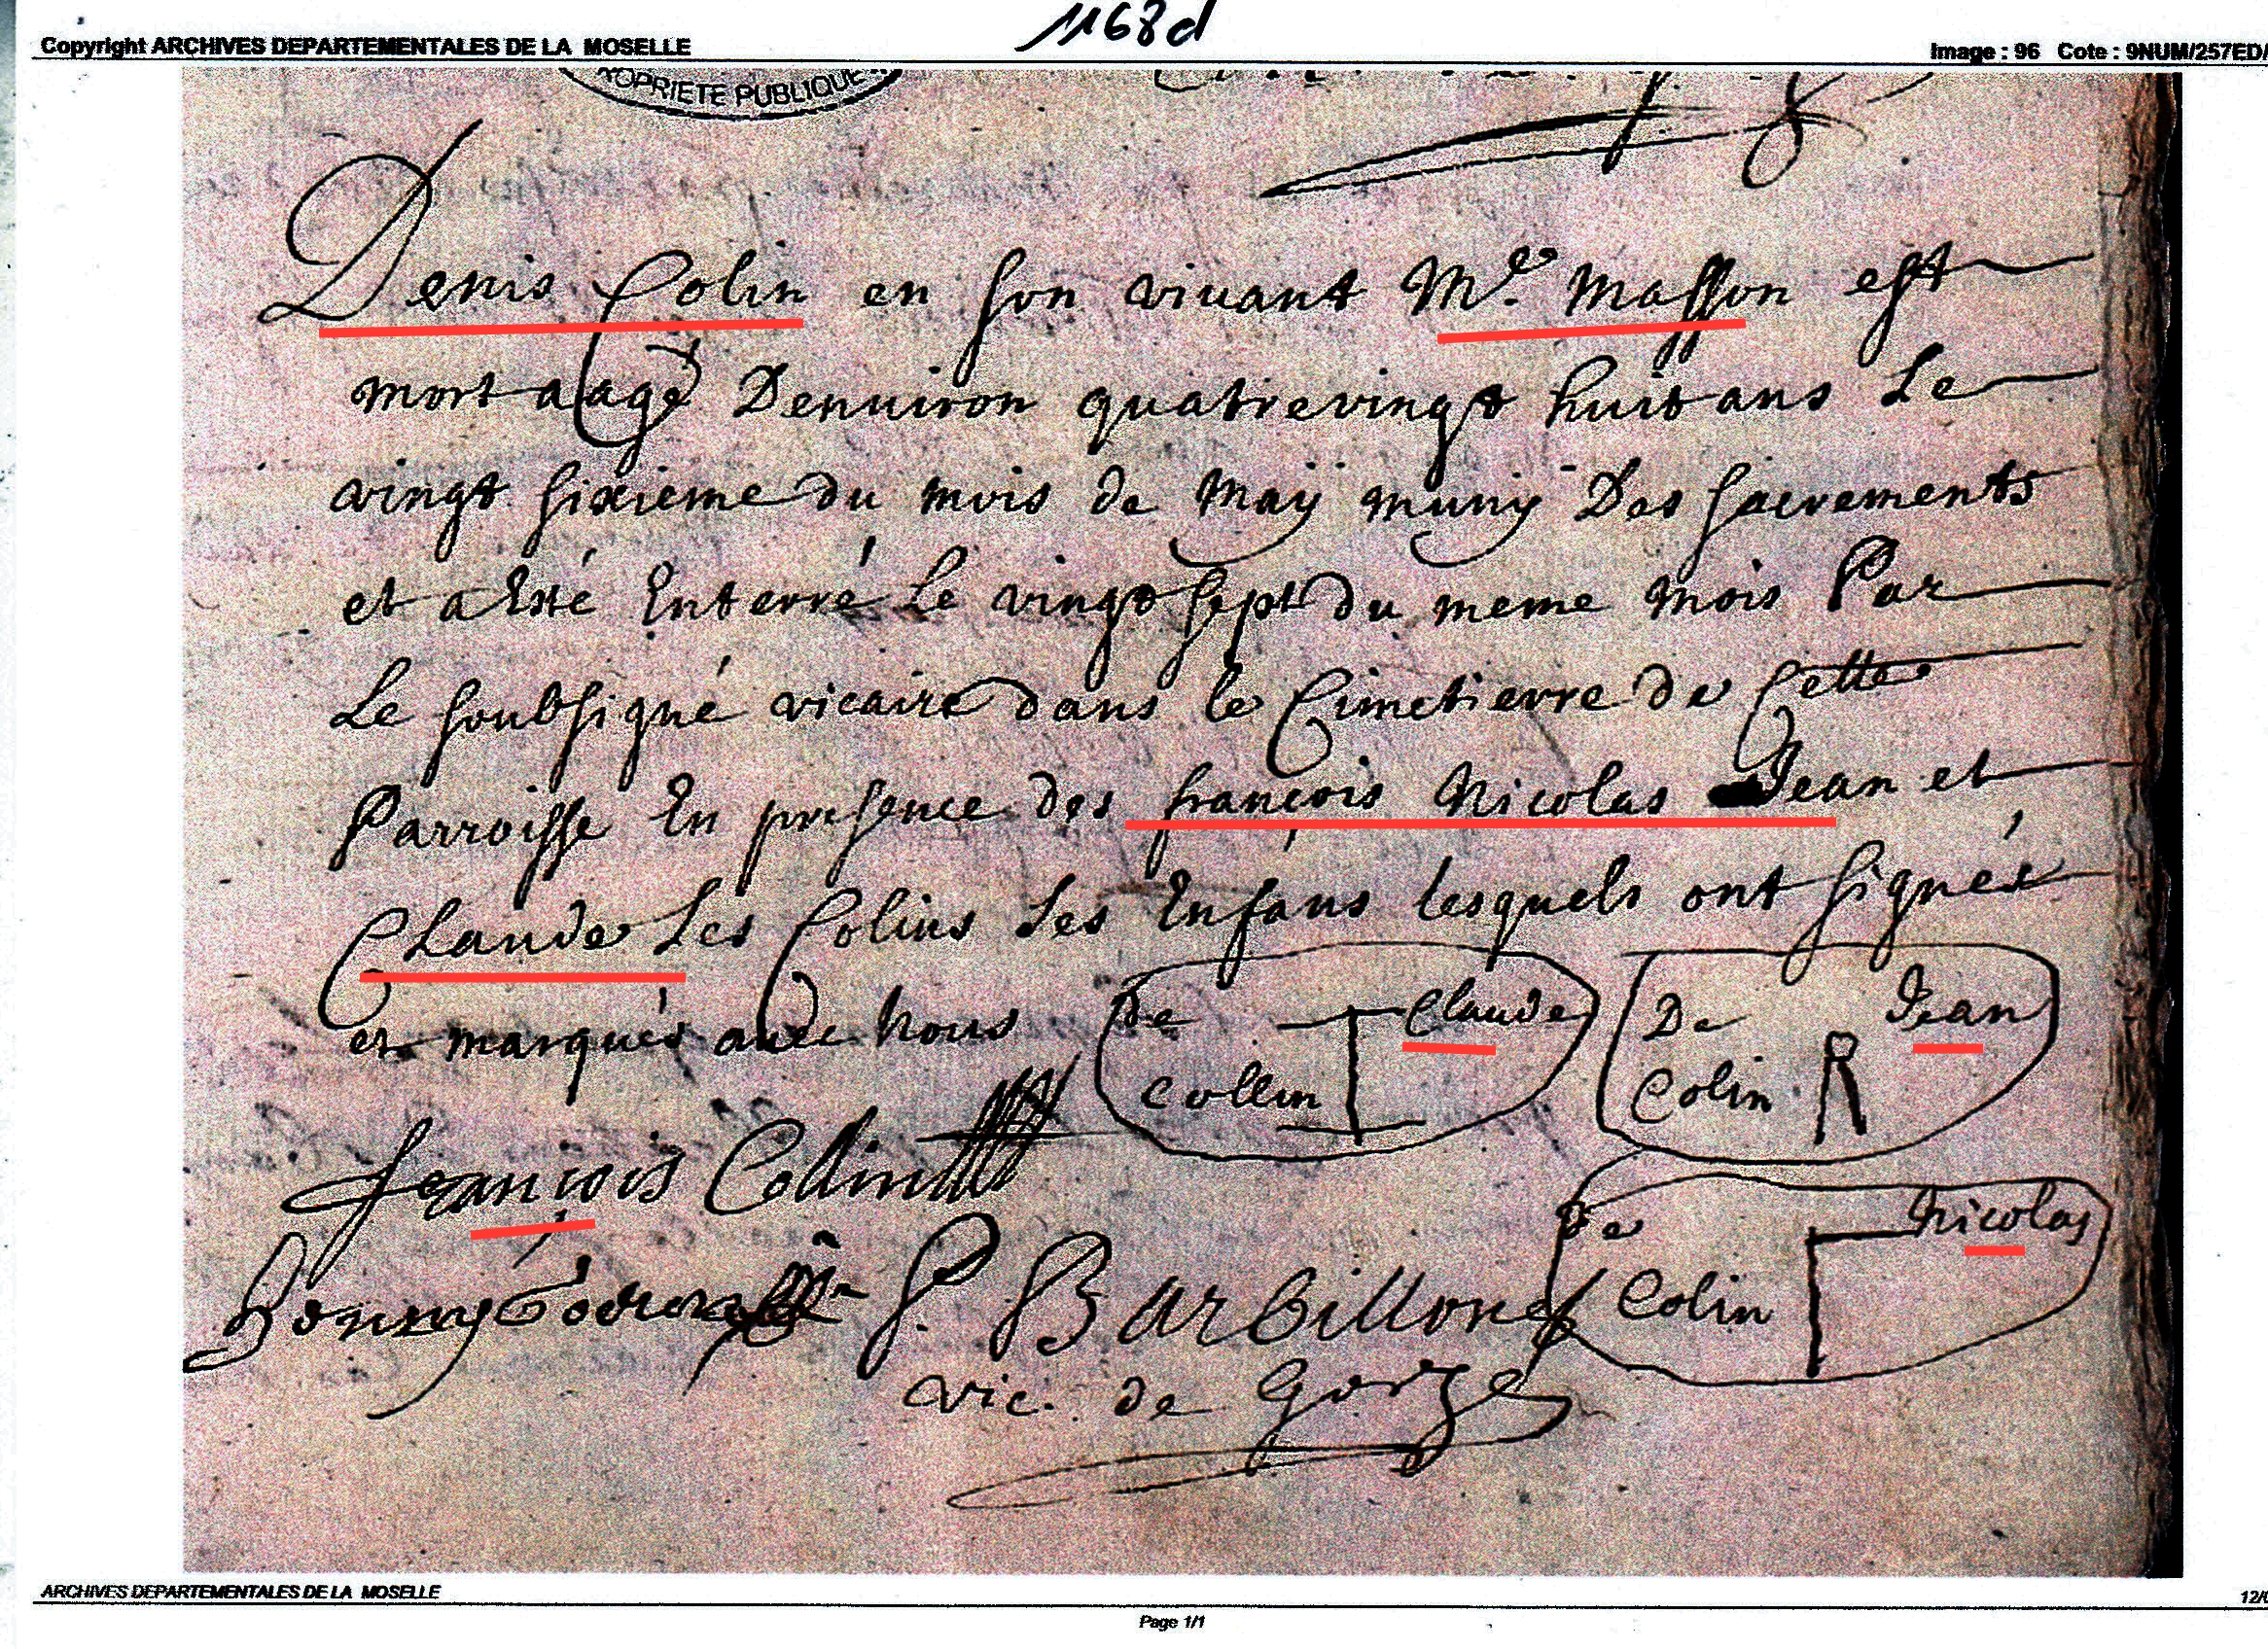 1168d
Copyright ARCHIVES DEPARTEMENTALES DE LA MOSELLE
Image : 96 Cote : 9NUM/257ED/
PROPRIETE PUBLIQUE
Denis Colin en son vivant Me. Masson est
mort aagé Denuiron quatrevingt huit ans Le
vingt sixieme du mois de Maÿ munÿ Des sacrements
et a Esté Enterré Le vingt sept du meme mois Par
Le soubsigné vicaire dans le Cimetierre de Cette
Parroisse En presence des françois Nicolas Jean et
CLaude Les Colins ses Enfans lesquels ont signés
et marqués avec nous
De Claude
Collin
De Jean
Colin
françois Collin
De Nicolas
Colin
P. Barbillon
vic. de Gorze
ARCHIVES DEPARTEMENTALES DE LA MOSELLE
12/0
Page 1/1